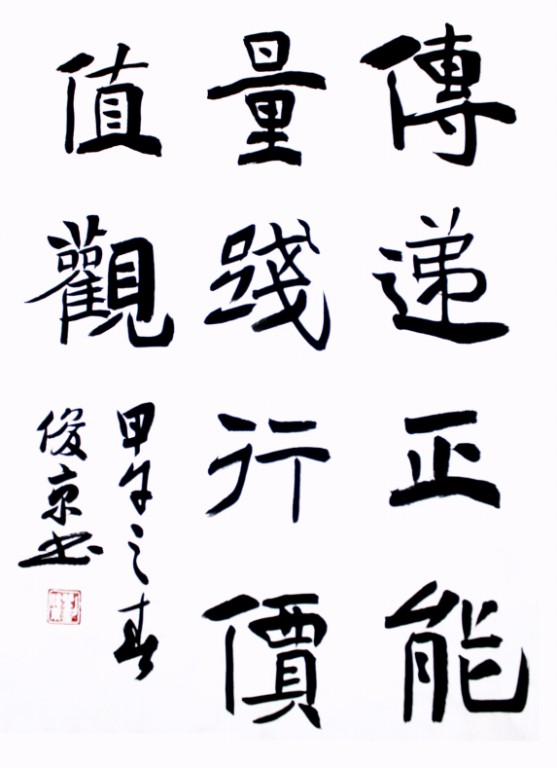 傳递正能
量踐行價
值觀
甲午之春
俊京书